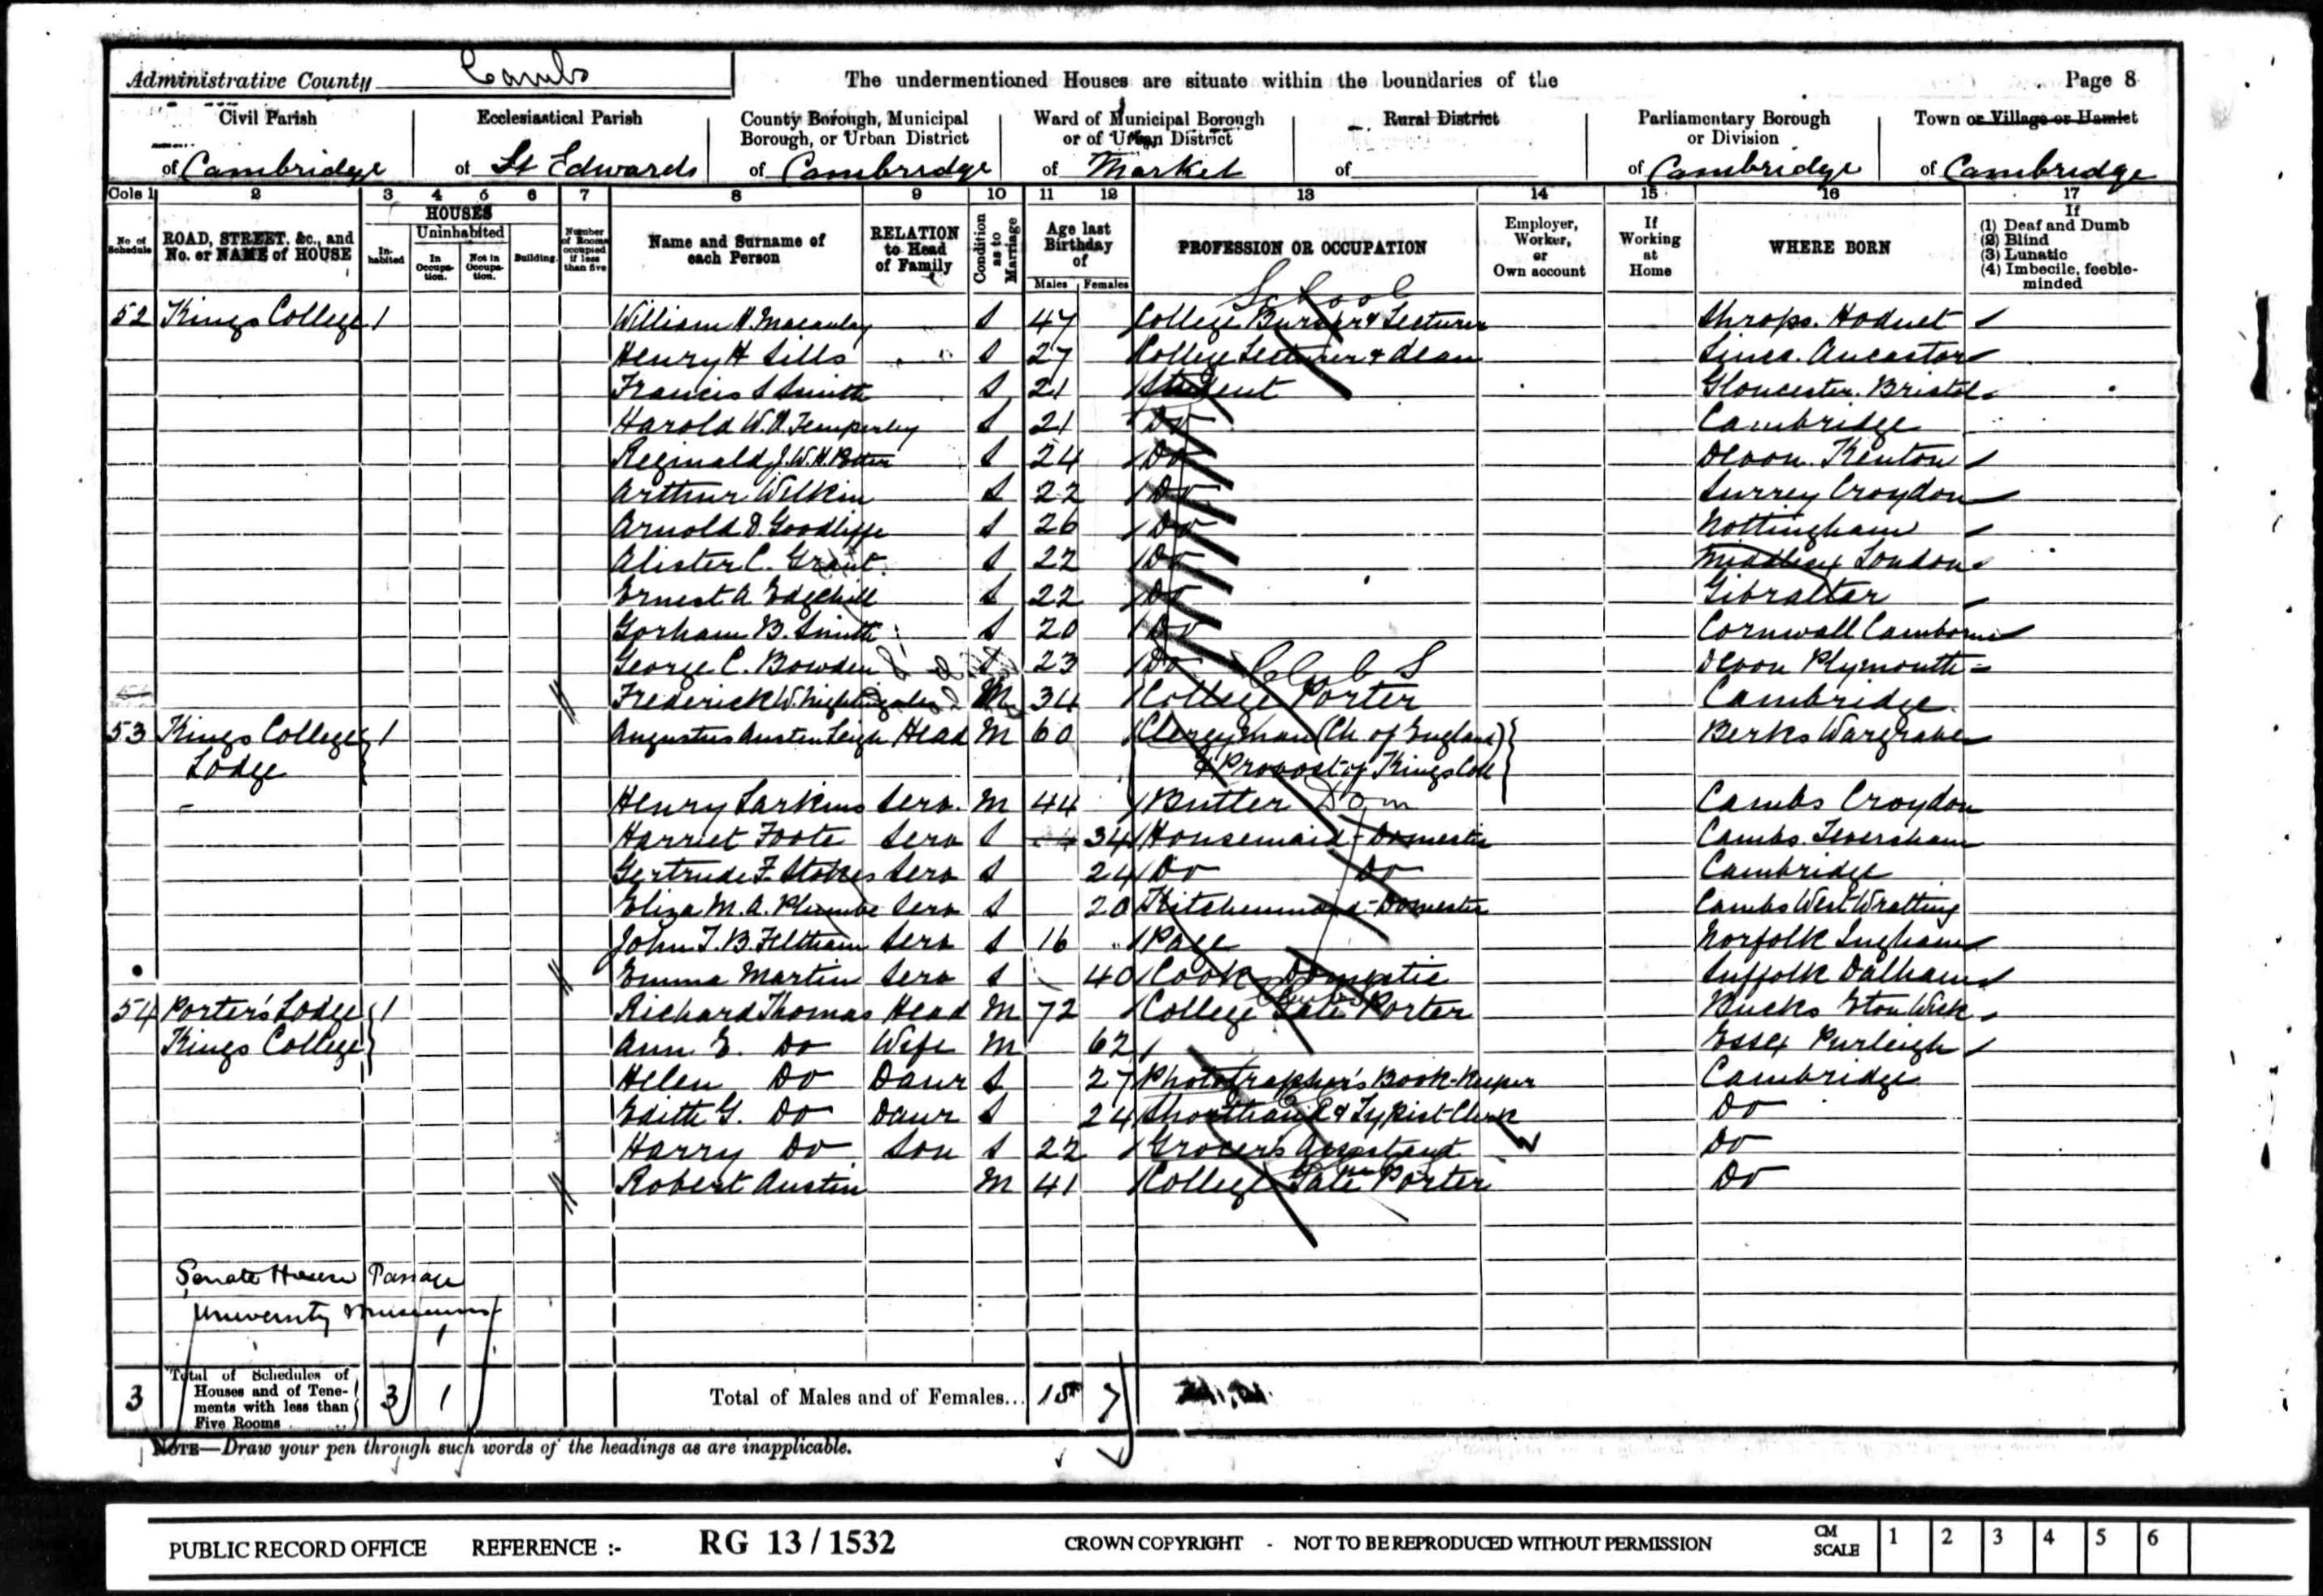 Administrative County Cambs The undermentioned Houses are situate within the boundaries of the Page 8
Civil Parish of Cambridge
Ecclesiastical Parish of St Edwards
County Borough, Municipal Borough, or Urban District of Cambridge
Ward of Municipal Borough or of Urban District of Market
Rural District of
Parliamentary Borough or Division of Cambridge
Town or Village or Hamlet of Cambridge
Cols 1 2 3 4 5 6 7 8 9 10 11 12 13 14 15 16 17
No of Schedule
ROAD, STREET, &c., and No. or NAME of HOUSE
HOUSES
In-habited
Uninhabited
In Occupa-tion.
Not in Occupa-tion.
Building.
Number of Rooms occupied if less than five
Name and Surname of each Person
RELATION to Head of Family
Condition as to Marriage
Age last Birthday of
Males Females
PROFESSION OR OCCUPATION
Employer, Worker, or Own account
If Working at Home
WHERE BORN
If
(1) Deaf and Dumb
(2) Blind
(3) Lunatic
(4) Imbecile, feeble-minded
School
52 Kings College 1 William H. Macaulay S 47 College Bursar & Lecturer Shrops. Hodnet
Henry H Sills S 27 College Lecturer & Dean Lincs. Ancaster
Francis S Smith S 21 Student Gloucester. Bristol
Harold W.V. Temperley S 21 Do Cambridge
Reginald J.W.H. Potter S 24 Do Devon. Kenton
Arthur Wilkin S 22 Do Surrey Croydon
Arnold D. Goodliffe S 26 Do Nottingham
Alister C. Grant S 22 Do Middlesex London
Ernest A Edgehill S 22 Do Gibraltar
Gorham B. Smith S 20 Do Cornwall Camborne
George C. Bowden S 23 Do Devon Plymouth
Clubs
Frederick W Nightingale M 34 College Porter Cambridge
53 Kings College 1 Augustus Austen Leigh Head M 60 Clergyman (Ch. of England) Berks Wargrave
Lodge & Provost of Kings Coll
Henry Larkins Serv. M 44 Butler Dom Cambs Croydon
Harriet Foote Serv S 34 Housemaid - Domestic Cambs. Teversham
Gertrude F. Stokes Serv S 24 Do Do Cambridge
Eliza M.A. Plumbe Serv S 20 Kitchenmaid - Domestic Cambs West Wratting
John T.B. Feltham Serv S 16 Page Norfolk Ingham
Emma Martin Serv S 40 Cook Domestic Suffolk Dalham
54 Porter's Lodge 1 Richard Thomas Head M 72 College Gate Porter Bucks Eton Wick
Kings College Ann E. Do Wife M 62 Essex Purleigh
Helen Do Daur S 27 Photographer's Book-Keeper Cambridge
Edith G. Do Daur S 24 Shorthand & Typist-Clerk Do
Harry Do Son S 22 Grocer's Assistant Do
Robert Austin M 41 College Gate Porter Do
Senate House Passage
University Museums
1
3 Total of Schedules of Houses and of Tene-ments with less than Five Rooms 3 1 Total of Males and of Females... 18 7
NOTE—Draw your pen through such words of the headings as are inapplicable.
PUBLIC RECORD OFFICE REFERENCE :- RG 13 / 1532 CROWN COPYRIGHT - NOT TO BE REPRODUCED WITHOUT PERMISSION CM SCALE 1 2 3 4 5 6